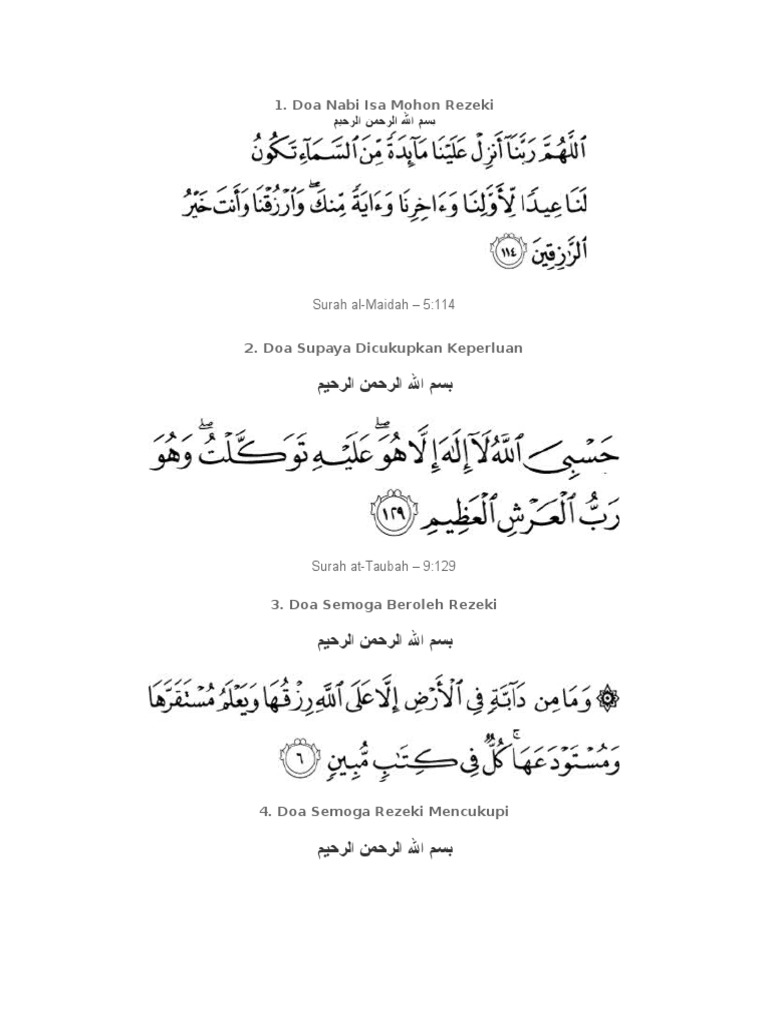 1. Doa Nabi Isa Mohon Rezeki
بسم الله الرحمن الرحيم
ٱللَّهُمَّ رَبَّنَآ أَنزِلۡ عَلَيۡنَا مَآئِدَةٗ مِّنَ ٱلسَّمَآءِ تَكُونُ
لَنَا عِيدٗا لِّأَوَّلِنَا وَءَاخِرِنَا وَءَايَةٗ مِّنكَۖ وَٱرۡزُقۡنَا وَأَنتَ خَيۡرُ
ٱلرَّٰزِقِينَ ١١٤
Surah al-Maidah – 5:114
2. Doa Supaya Dicukupkan Keperluan
بسم الله الرحمن الرحيم
حَسۡبِيَ ٱللَّهُ لَآ إِلَٰهَ إِلَّا هُوَۖ عَلَيۡهِ تَوَكَّلۡتُۖ وَهُوَ
رَبُّ ٱلۡعَرۡشِ ٱلۡعَظِيمِ ١٢٩
Surah at-Taubah – 9:129
3. Doa Semoga Beroleh Rezeki
بسم الله الرحمن الرحيم
۞ وَمَا مِن دَآبَّةٖ فِي ٱلۡأَرۡضِ إِلَّا عَلَى ٱللَّهِ رِزۡقُهَا وَيَعۡلَمُ مُسۡتَقَرَّهَا
وَمُسۡتَوۡدَعَهَاۚ كُلّٞ فِي كِتَٰبٖ مُّبِينٖ ٦
4. Doa Semoga Rezeki Mencukupi
بسم الله الرحمن الرحيم